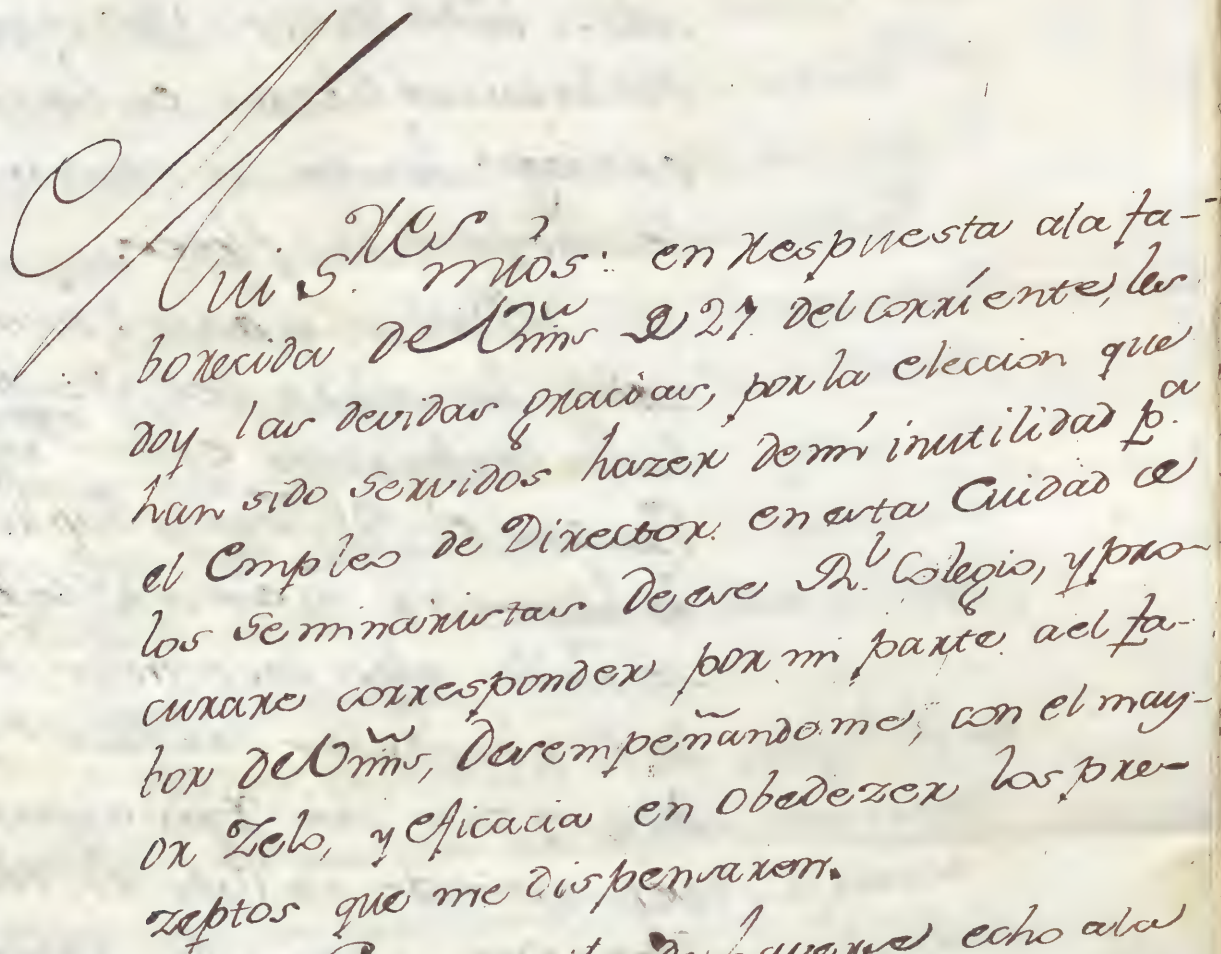 Mui S.res mios: en respuesta ala fa-
borecida de Vmȓs de 27 del corriente, les
doy las devidas gracias, por la eleccion que
han sido servidos hazer demi inutilidad p.a
el Empleo de Director en esta Cuidad de
los Seminaristas de ese R.l Colegio, y pro-
curare corresponder por mi parte ael fa-
bor de Vms, Desempeñandome, con el may-
or Zelo, y eficacia en obedezer los pre-
zeptos que me dispensaren.
echo ala